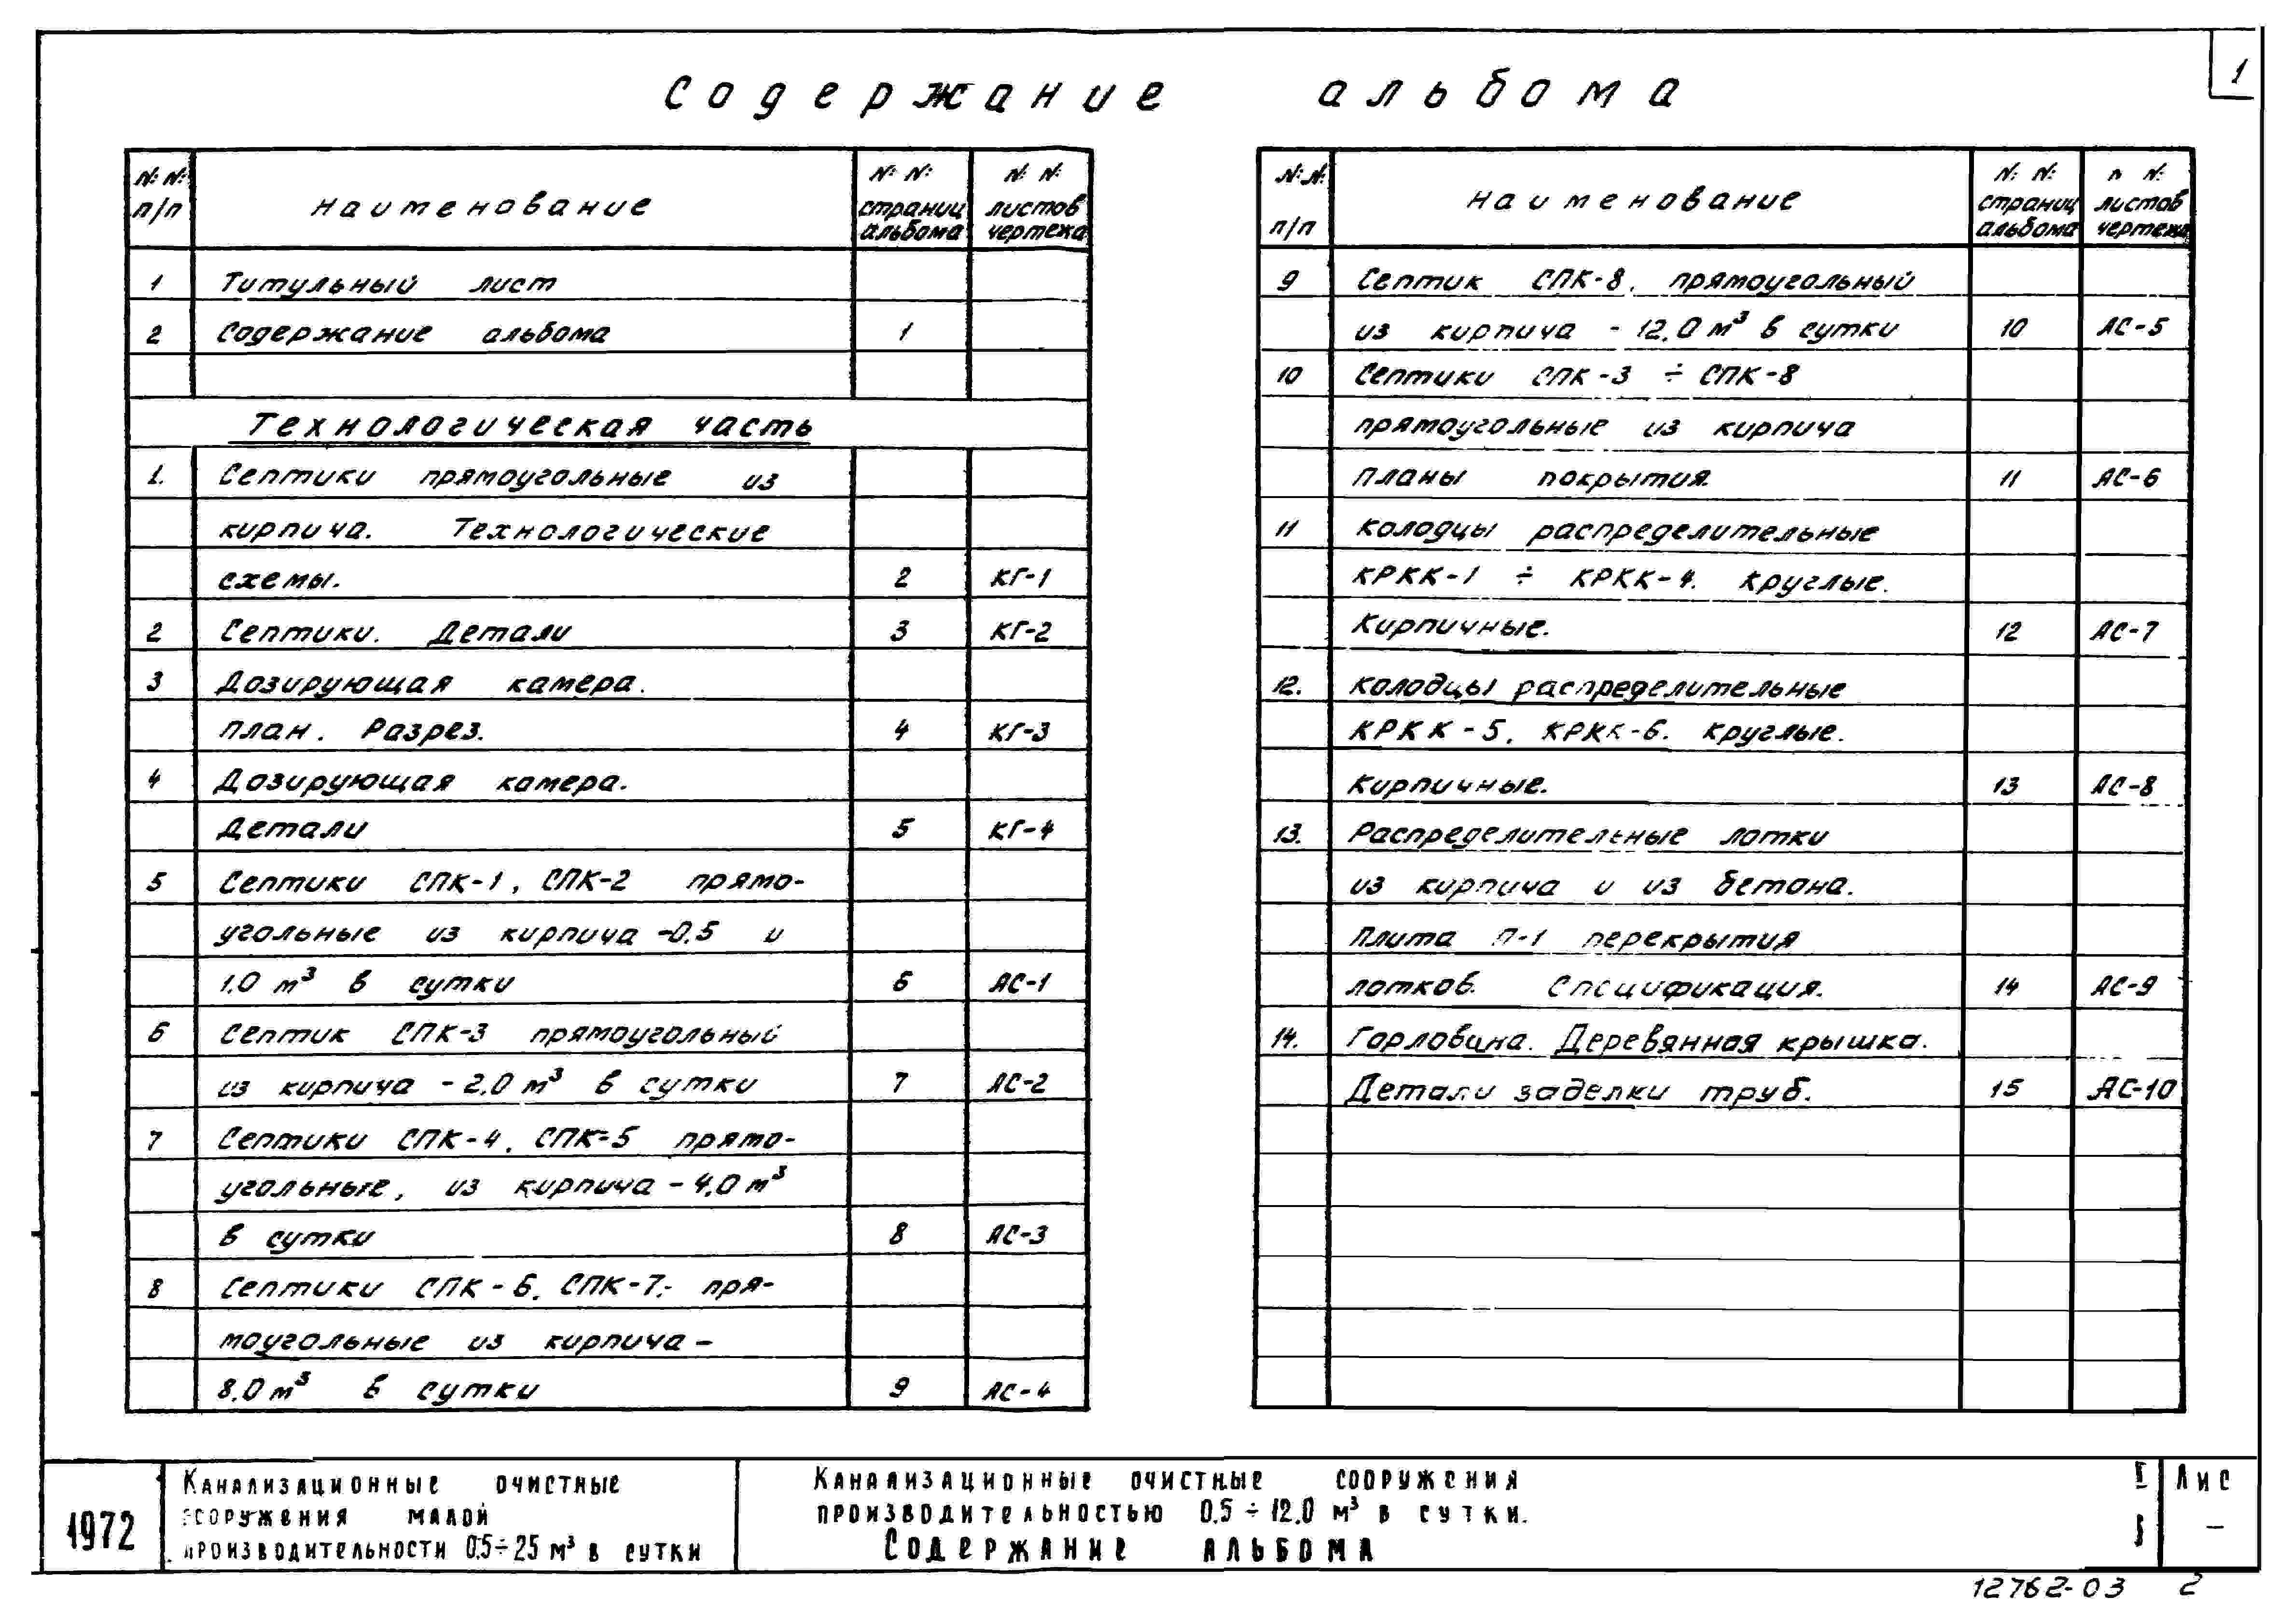 1
Содержание альбома
№ № п/п наименование № № страниц альбома № № листов чертежа
1 Титульный лист
2 Содержание альбома 1
Технологическая часть
1. Септики прямоугольные из
кирпича. Технологические
схемы. 2 КГ-1
2 Септики. Детали 3 КГ-2
3 Дозирующая камера.
План. Разрез. 4 КГ-3
4 Дозирующая камера.
Детали 5 КГ-4
5 Септики СПК-1, СПК-2 прямо-
угольные из кирпича -0,5 и
1.0 м³ в сутки 6 АС-1
6 Септик СПК-3 прямоугольный
из кирпича - 2,0 м³ в сутки 7 АС-2
7 Септики СПК-4, СПК-5 прямо-
угольные, из кирпича - 4,0 м³
в сутки 8 АС-3
8 Септики СПК-6, СПК-7,- пря-
моугольные из кирпича -
8,0 м³ в сутки 9 АС-4
№ № п/п наименование № № страниц альбома № листов чертежа
9 Септик СПК-8, прямоугольный
из кирпича - 12,0 м³ в сутки 10 АС-5
10 Септики СПК-3 ÷ СПК-8
прямоугольные из кирпича
Планы покрытия. 11 АС-6
11 Колодцы распределительные
КРКК-1 ÷ КРКК-4. Круглые.
Кирпичные. 12 АС-7
12. Колодцы распределительные
КРКК-5, КРКК-6. Круглые.
Кирпичные. 13 АС-8
13. Распределительные лотки
из кирпича и из бетона.
Плита П-1 перекрытия
лотков. Спецификация. 14 АС-9
14. Горловина. Деревянная крышка.
Детали заделки труб. 15 АС-10
1972
Канализационные очистные
сооружения малой
производительности 0.5÷25 м³ в сутки
Канализационные очистные сооружения
производительностью 0.5÷12.0 м³ в сутки.
Содержание альбома
Лис
-
12762-03 2